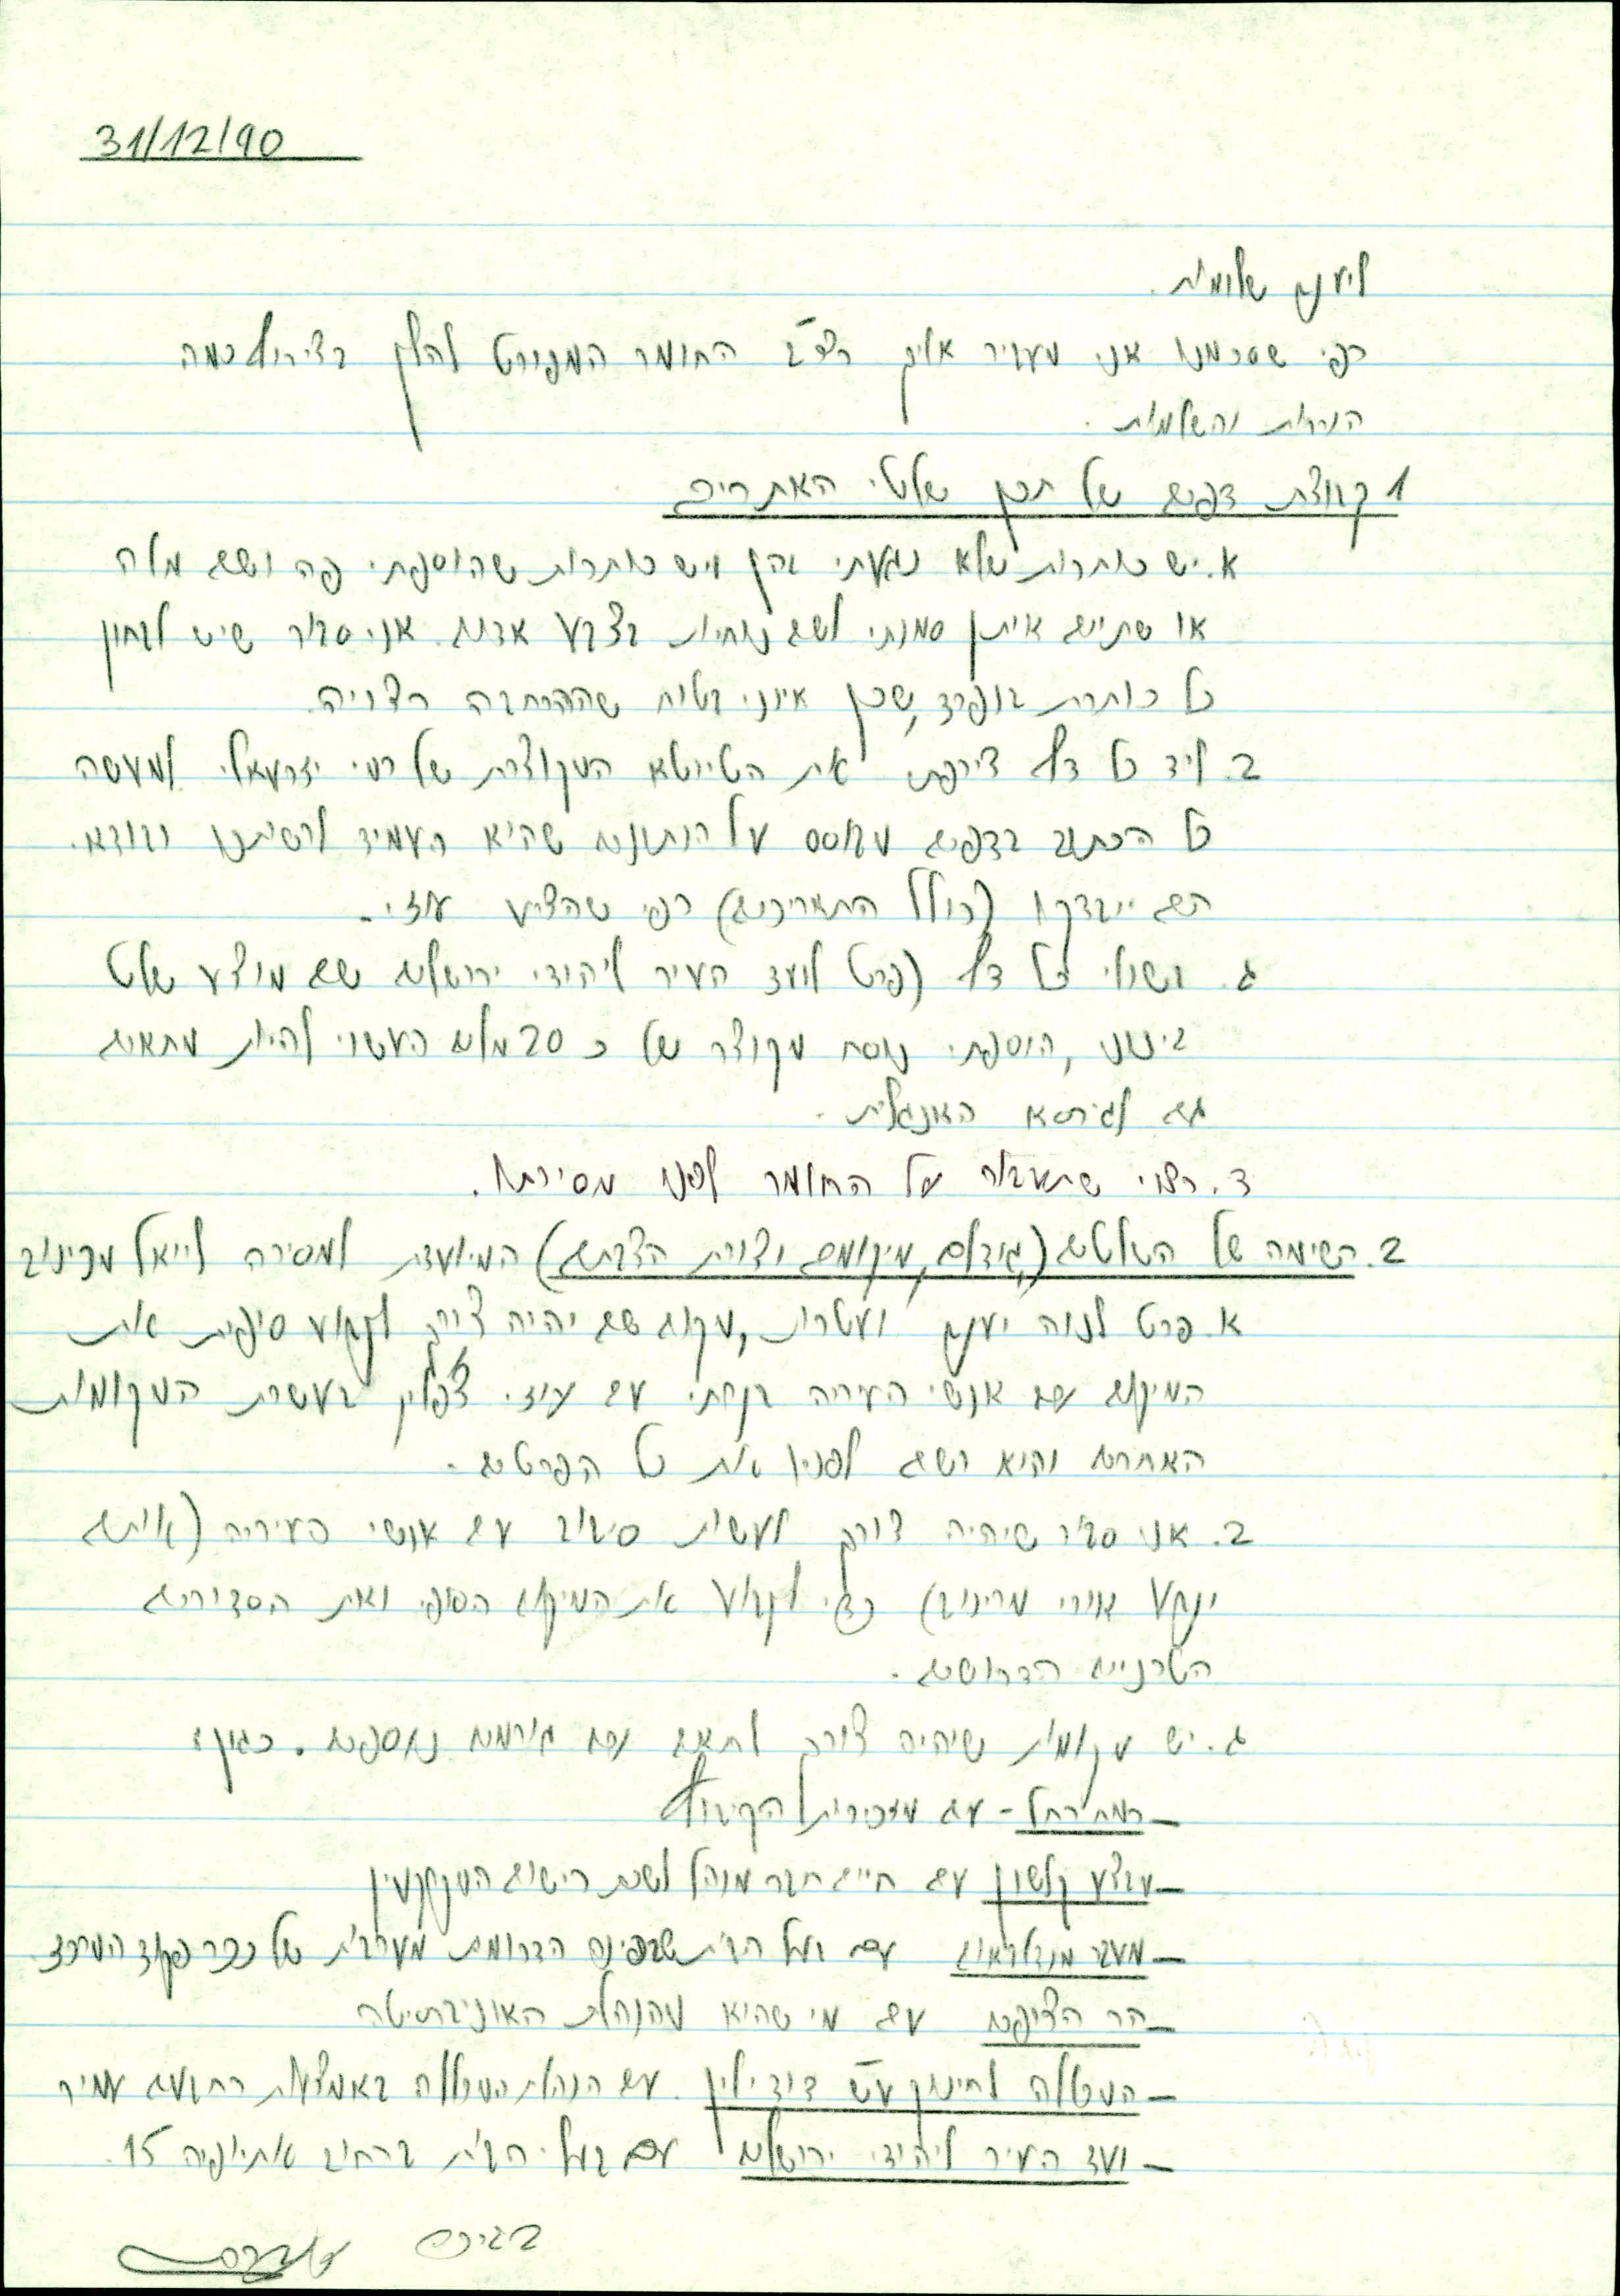 31/12/90
ליענם שלומות.
כפי שסכמנו אני מעביר אליך רצ"ב החומר המפורט להלן בצירוף כמה
הערות והשלמות.
1 קבוצת דפים של תכן שלטי האתרים
א. יש כותרות שלא נגעתי בהן ויש כותרות שהוספתי פה ושם מלה
או שתיים איתן סמנתי לשם נוחיות בצבע אדום. אני סבור שיש לבחון
כל כותרת בנפרד, שכן אינני בטוח שההרחבה רצויה.
ב. ליד כל דף צירפתי את הטיוטא המקוצרת של רמי יזרעאלי. למעשה
כל הכתוב בדפים מבוסס על הנתונים שהיא העמיד לרשותנו ובודאי
הם ייבדקו (כולל התאריכים) כפי שהציע עוזי.
ג. בשולי כל דף (פרט לועד העיר ליהודי ירושלים שם מוצע שלט
בינוני, הוספתי נוסח מקוצר של כ 20 מלים העשוי להיות מתאים
גם לגירסא האנגלית.
ד. רצוי שתעבור על החומר לפני מסירתו.
2. רשימה של השלטים (גודלם, מיקומם וצורת הצבתם) המיועדת למסירה לייאל מרינוב
א. פרט לנוה יעקב ועטרות, מקום שם יהיה צורך לקבוע סופית את
המיקום עם אנשי העיריה בקרתי עם עוזי צ'פלין בעשרת המקומות
האחרים והוא רשם לפניו את כל הפרטים.
ב. אני סבור שיהיה צורך לעשות סיבוב עם אנשי העיריה (אותם
יקבע אורי מרינוב) כדי לקבוע את המיקום הסופי ואת הסדורים
הטכניים הדרושים.
ג. יש מקומות שיהיה צורך לתאם עם גורמים נוספים. כגון:
- רמת רחל - עם מזכירות הקיבוץ
- מבצע קלשון עם חיים חבר מנהל לשכת רישום המקרקעין
- מעבר מנדלבאום עם בעל הבית שבפינה הדרומית מערבית של ככר פקוד המרכז
- הר הצופים עם מי שהיא מהנהלת האוניברסיטה
- המכללה לחינוך ע"ש דוד ילין. עם הנהלת המכללה באמצעות רחבעם עמיר
- ועד העיר ליהודי ירושלים עם בעלי הבית ברחוב אתיופיה 15.
בברכה